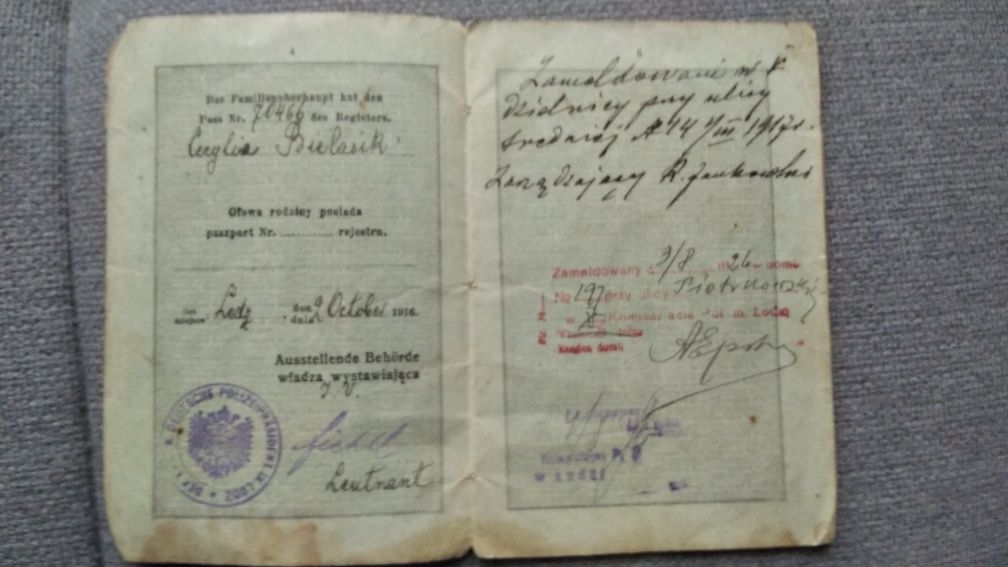 4
Das Familienoberhaupt hat den
Pass Nr. 70466 des Registers.
Cecylia Bielasik
Głowa rodziny posiada
paszport Nr. .............. rejestru.
Ort
miejsce Lodz, den
dnia 9 October 1916
Ausstellende Behörde
władza wystawiająca
I. V.
Leutnant
DEUTSCHE POLIZEIPRÄSIDENT IN LODZ
5
Zameldowani w V
dzielnicy przy ulicy
średniej № 14 1917r.
Zarządzający R. Jankowski
Zameldowany d. 3/8 m 24 domu
№ 197 przy ulicy Piotrkowskiej
w Komisarjacie Pol. m. Łodzi
Książka domu
P. P.
w Łodzi